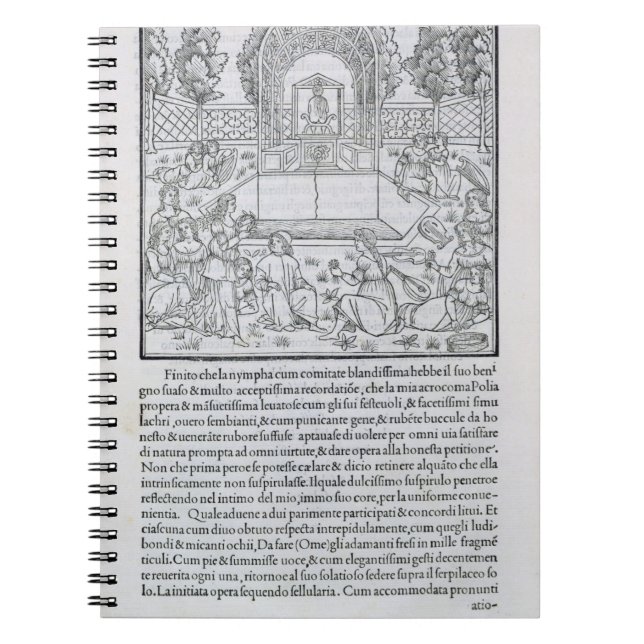 Finito che la nympha cum comitate blandissima hebbe il suo beni
gno suaso & multo acceptissima recordatiõe, che la mia acrocoma Polia
propera & mãsuetissima leuatose cum gli sui festeuoli, & facetissimi simu
lachri, ouero sembianti, & cum punicante gene, & rubẽte buccule da ho
nesto & uenerãte rubore suffuse aptauase di uolere per omni uia satisfare
di natura prompta ad omni uirtute, & dare opera alla honesta petitione.
Non che prima peroe se potesse cælare & dicio retinere alquãto che ella
intrinsicamente non suspirulasse. Ilquale dulcissimo suspirulo penetroe
reflectendo nel intimo del mio, immo suo core, per la uniforme conue-
nientia. Quale aduene a dui parimente participati & concordi litui. Et
ciascuna cum diuo obtuto respecta intrepidulamente, cum quegli ludi-
bondi & micanti ochii, Da fare (Ome) gli adamanti fresi in mille fragmẽ
ticuli. Cum pie & summisse uoce, & cum elegantissimi gesti decentemen
te reuerita ogni una, ritornoe al suo solatioso sedere supra il serpilaceo so
lo. La initiata opera sequendo sellularia. Cum accommodata pronunti
atio-